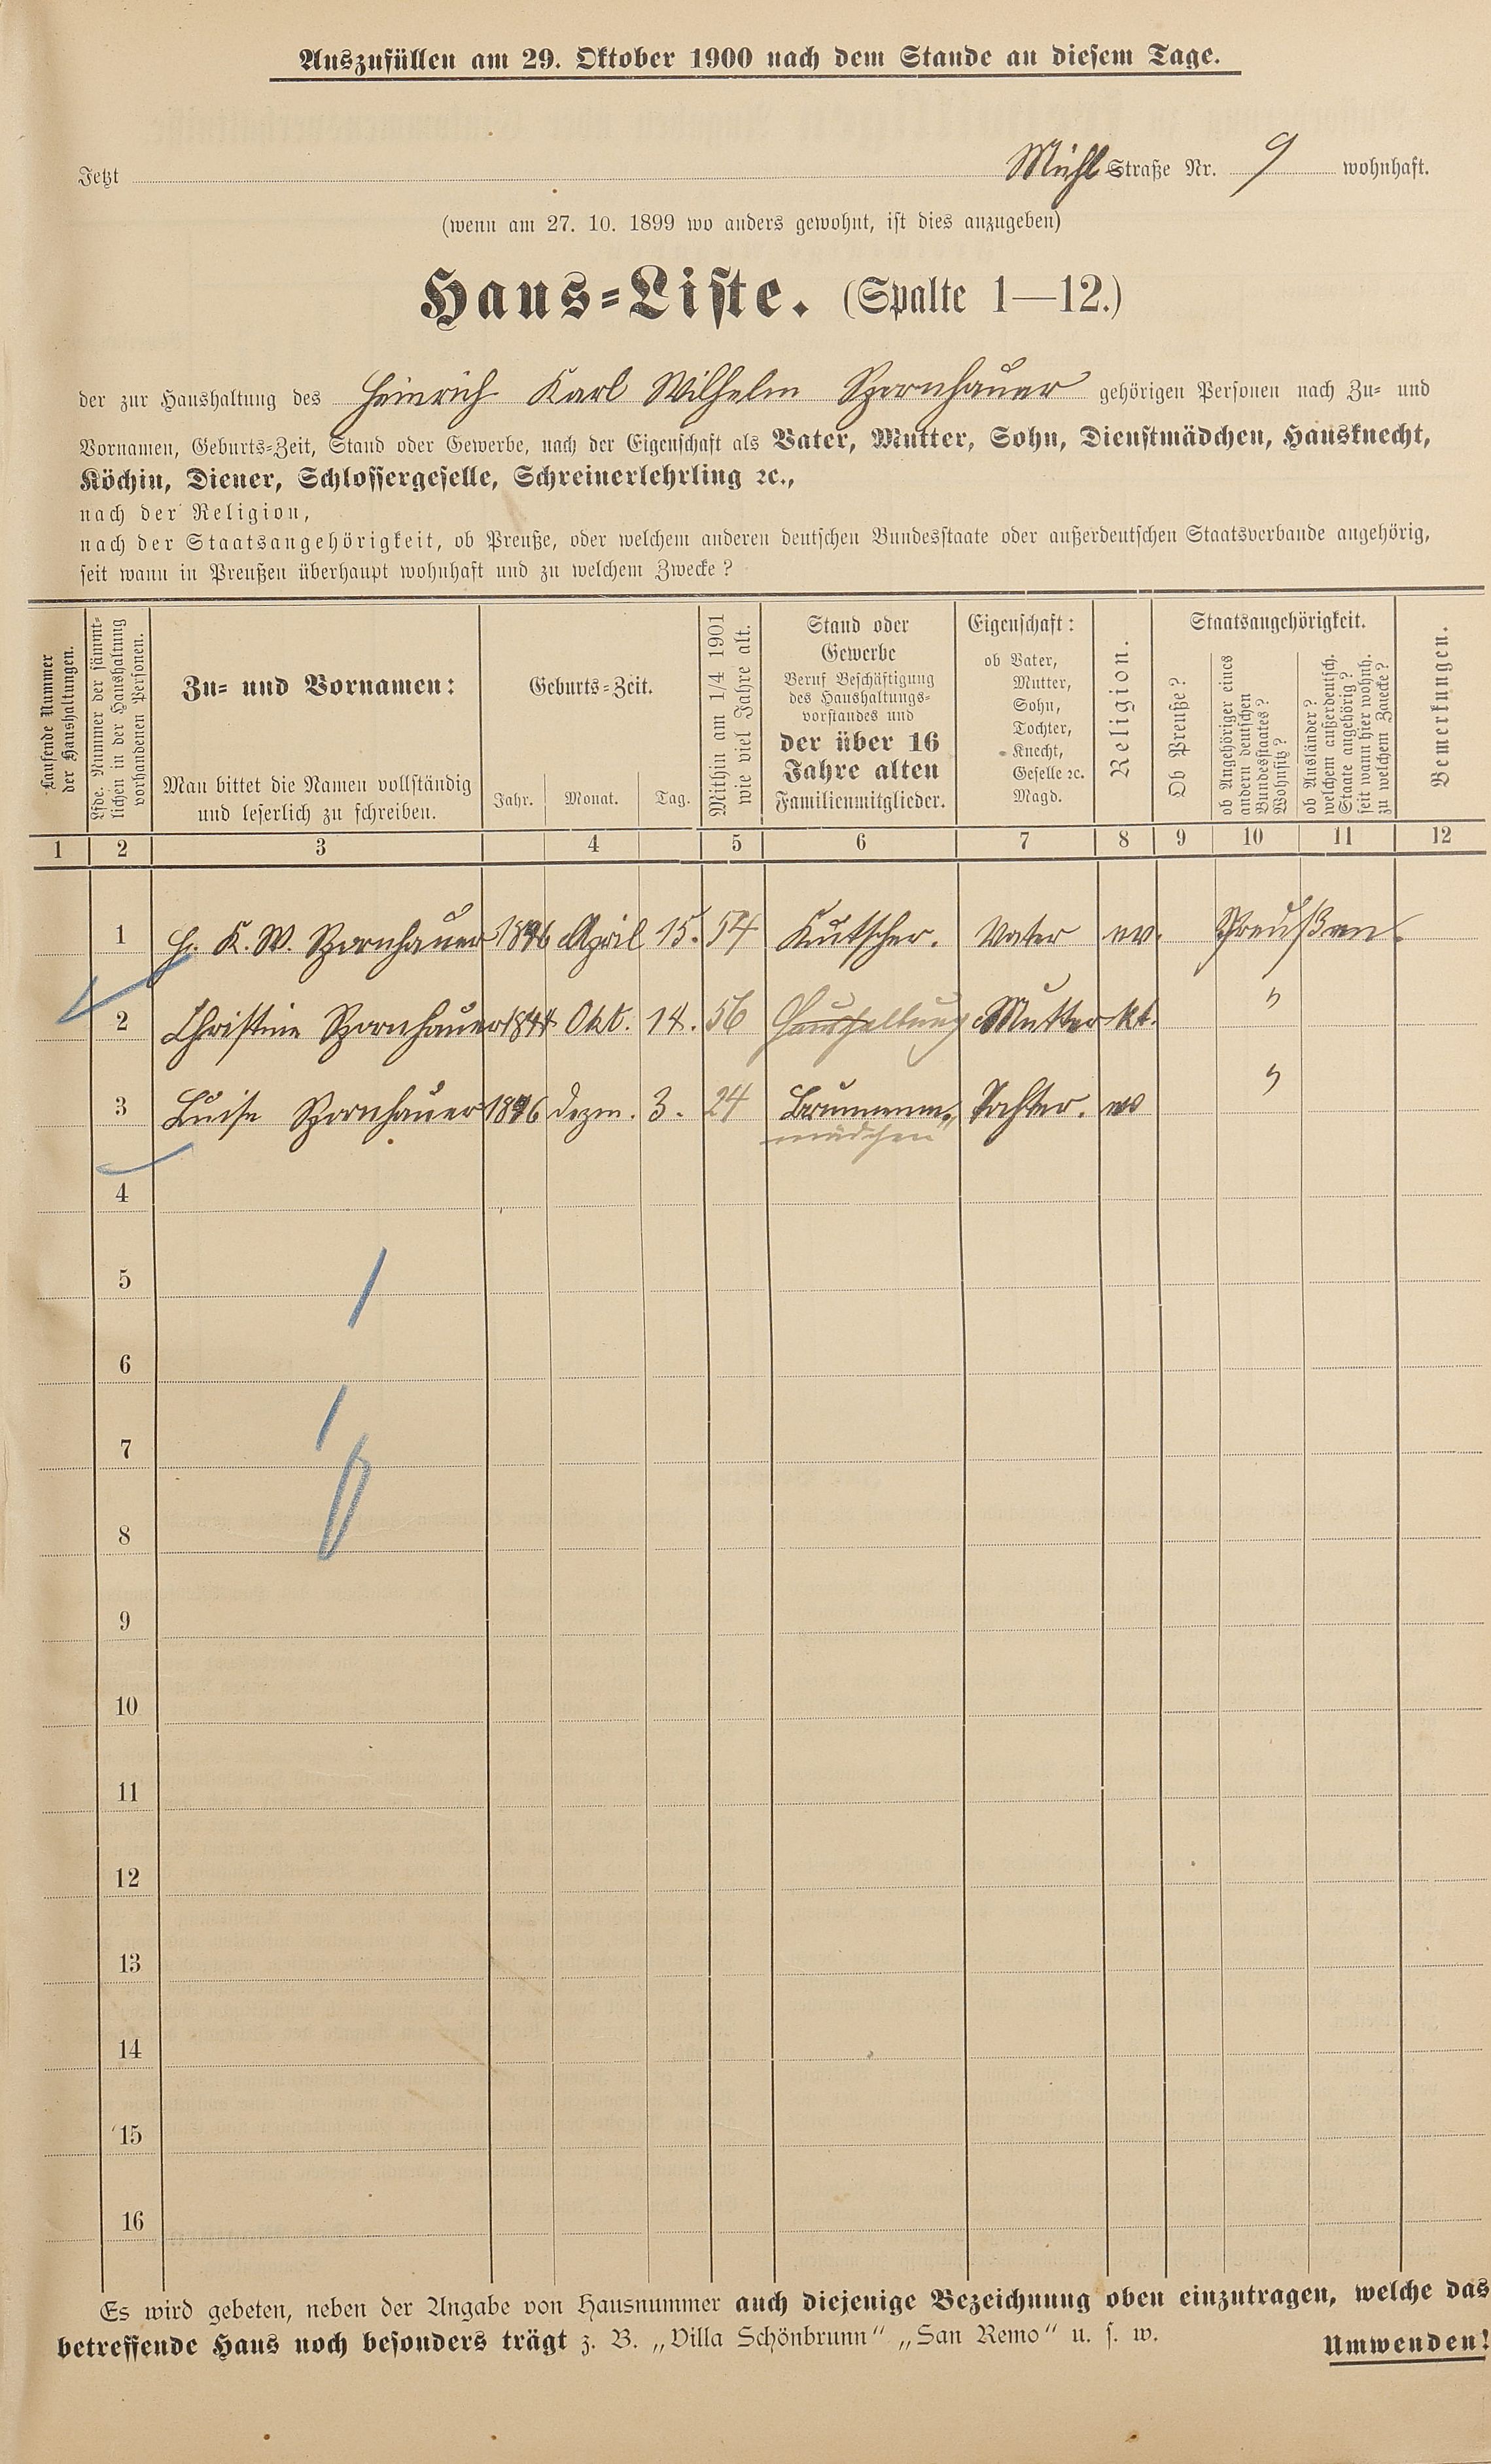 Auszufüllen am 29. Oktober 1900 nach dem Stande an diesem Tage.
Jetzt Mühl Straße Nr. 9 wohnhaft.
(wenn am 27. 10. 1899 wo anders gewohnt, ist dies anzugeben)
Haus-Liste. (Spalte 1—12.)
der zur Haushaltung des Heinrich Karl Wilhelm Spornhauer gehörigen Personen nach Zu- und
Vornamen, Geburts-Zeit, Stand oder Gewerbe, nach der Eigenschaft als Vater, Mutter, Sohn, Dienstmädchen, Hausknecht,
Köchin, Diener, Schlossergeselle, Schreinerlehrling ꝛc.,
nach der Religion,
nach der Staatsangehörigkeit, ob Preuße, oder welchem anderen deutschen Bundesstaate oder außerdeutschen Staatsverbande angehörig,
seit wann in Preußen überhaupt wohnhaft und zu welchem Zwecke?
Laufende Nummer
der Haushaltungen.
Lfde. Nummer der sämmt-
lichen in der Haushaltung
vorhandenen Personen.
Zu- und Vornamen:
Man bittet die Namen vollständig
und leserlich zu schreiben.
Geburts-Zeit.
Jahr. Monat. Tag.
Mithin am 1/4 1901
wie viel Jahre alt.
Stand oder
Gewerbe
Beruf Beschäftigung
des Haushaltungs-
vorstandes und
der über 16
Jahre alten
Familienmitglieder.
Eigenschaft:
ob Vater,
Mutter,
Sohn,
Tochter,
Knecht,
Geselle ꝛc.
Magd.
Religion.
Staatsangehörigkeit.
Ob Preuße?
ob Angehöriger eines
andern deutschen
Bundesstaates?
Wohnsitz?
ob Ausländer?
welchem außerdeutsch.
Staate angehörig?
seit wann hier wohnh.
zu welchem Zwecke?
Bemerkungen.
1 2 3 4 5 6 7 8 9 10 11 12
1 H. K. W. Spornhauer 1846 April 15. 54 Kutscher. Vater ev. Preußen.
2 Christine Spornhauer 1844 Okt. 14. 56 Haushaltung Mutter kt. "
3 Luise Spornhauer 1876 Dezm. 3. 24 Brunnenm. Tochter. ev "
mädchen
4
5
6
7
8
9
10
11
12
13
14
15
16
Es wird gebeten, neben der Angabe von Hausnummer auch diejenige Bezeichnung oben einzutragen, welche das
betreffende Haus noch besonders trägt z. B. „Villa Schönbrunn“ „San Remo“ u. s. w.
Umwenden!